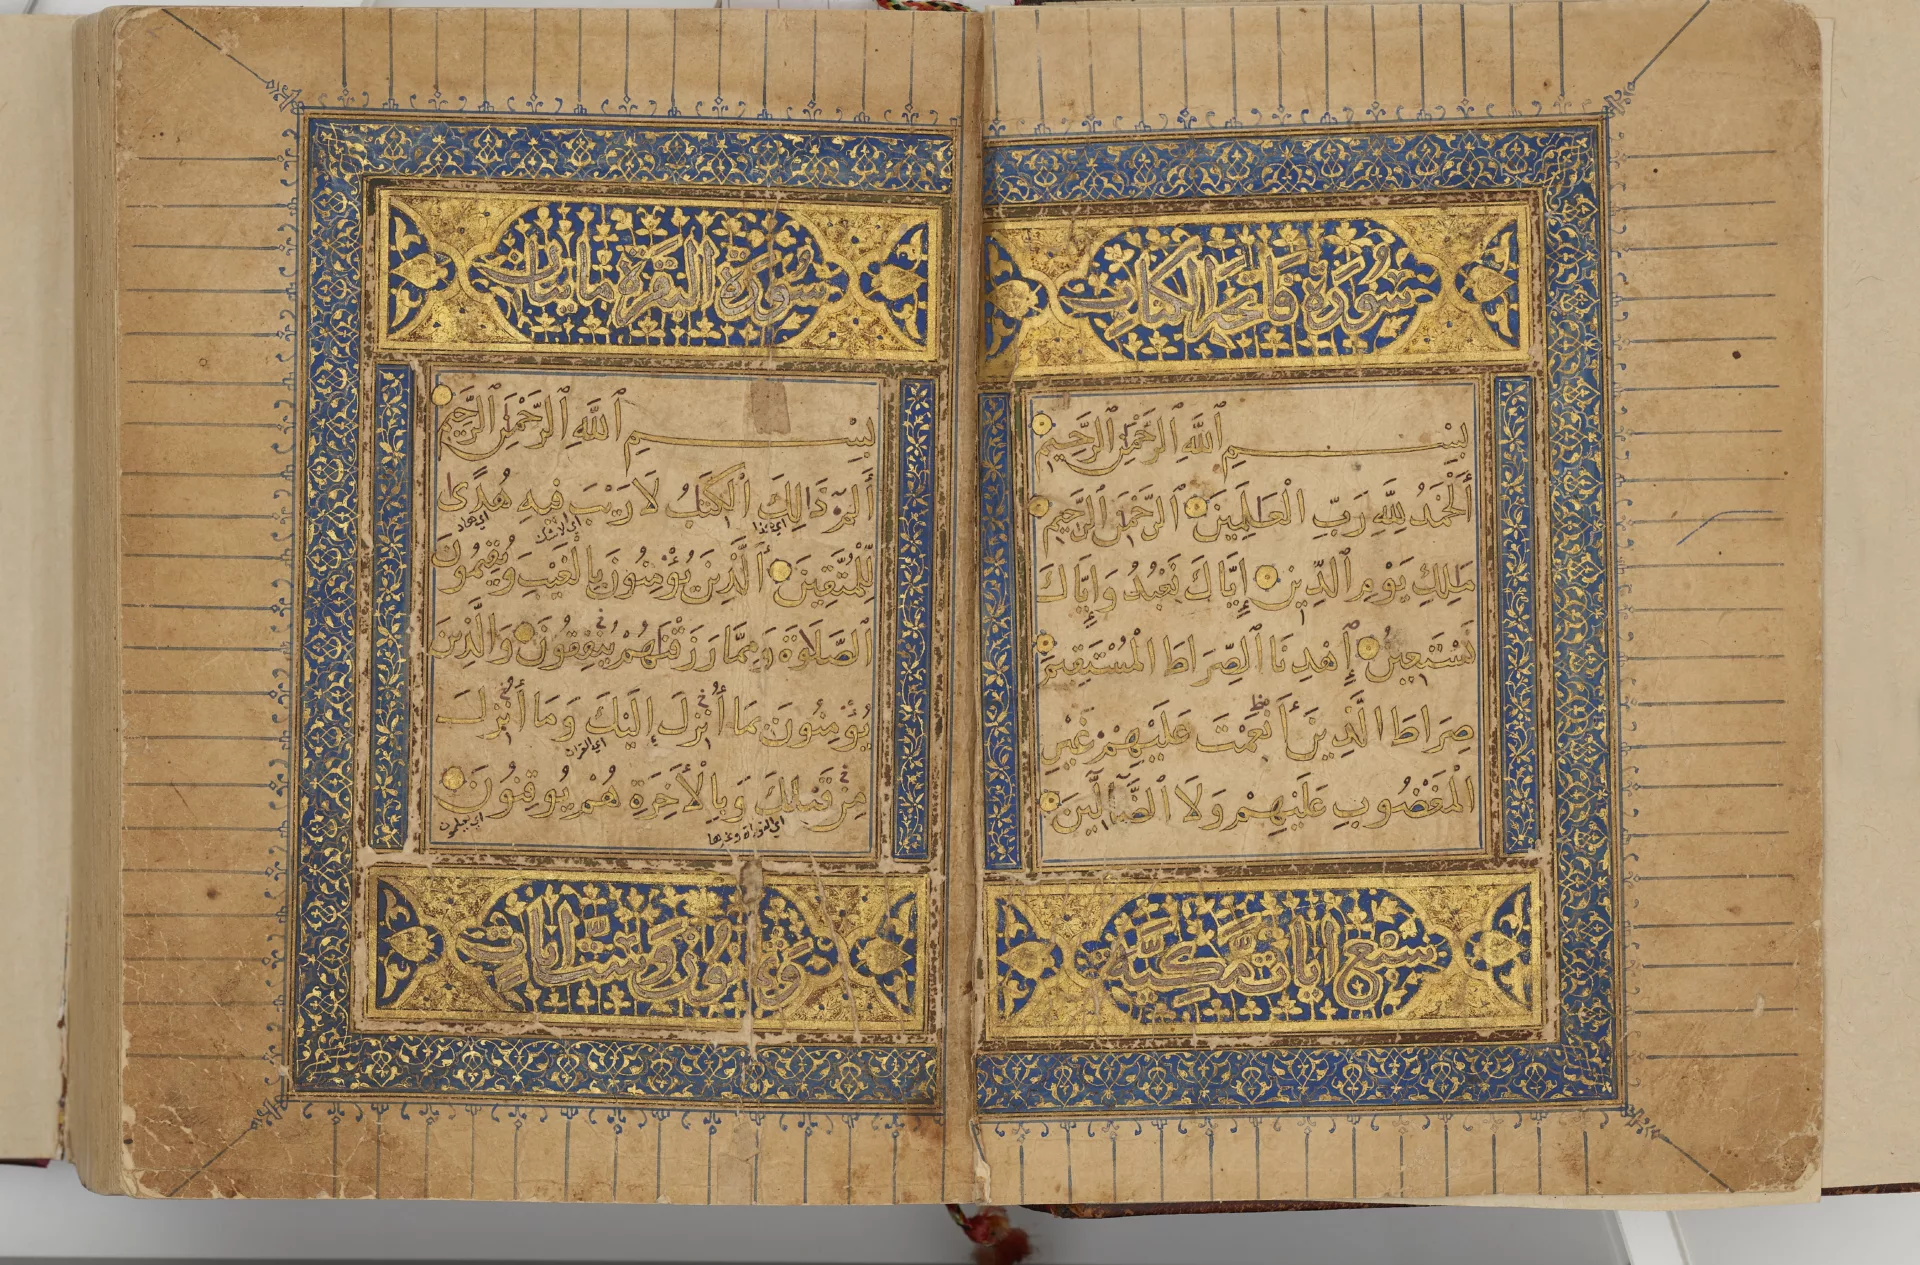 سُورَةُ فَاتِحَةِ الْكِتَابِ
بِسْمِ ٱللَّهِ ٱلرَّحْمَٰنِ ٱلرَّحِيمِ
أَلْحَمْدُ لِلَّهِ رَبِّ الْعَالَمِينَ ٱلرَّحْمَٰنِ ٱلرَّحِيمِ
مَلِكِ يَوْمِ ٱلدِّينِ إِيَّاكَ نَعْبُدُ وَإِيَّاكَ
نَسْتَعِينُ إِهْدِنَا ٱلصِّرَاطَ الْمُسْتَقِيمَ
صِرَاطَ الَّذِينَ أَنْعَمْتَ عَلَيْهِمْ غَيْرِ
الْمَغْضُوبِ عَلَيْهِمْ وَلَا ٱلضَّآلِّينَ
سَبْعُ اٰيَاتٍ مَكِّيَّة
سُورَةُ الْبَقَرَةِ مِائَتَانِ
بِسْمِ ٱللَّهِ ٱلرَّحْمَٰنِ ٱلرَّحِيمِ
أَلٓمٓ ذَالِكَ ٱلْكِتَابُ لَا رَيْبَ فِيهِ هُدًى
اي هذا اي لا شك
لِلْمُتَّقِينَ أَلَّذِينَ يُؤْمِنُونَ بِالْغَيْبِ وَيُقِيمُونَ
ٱلصَّلَوٰةَ وَمِمَّا رَزَقْنَٰهُمْ يُنْفِقُونَ وَالَّذِينَ
يُؤْمِنُونَ بِمَا أُنْزِلَ إِلَيْكَ وَمَا أُنْزِلَ
اي القران
مِنْ قَبْلِكَ وَبِالْأَخِرَةِ هُمْ يُوقِنُونَ
اي التوراة وغيرها اي يعلمون
وَثَمَانُونَ وَسِتُّ اٰيَاتٍ